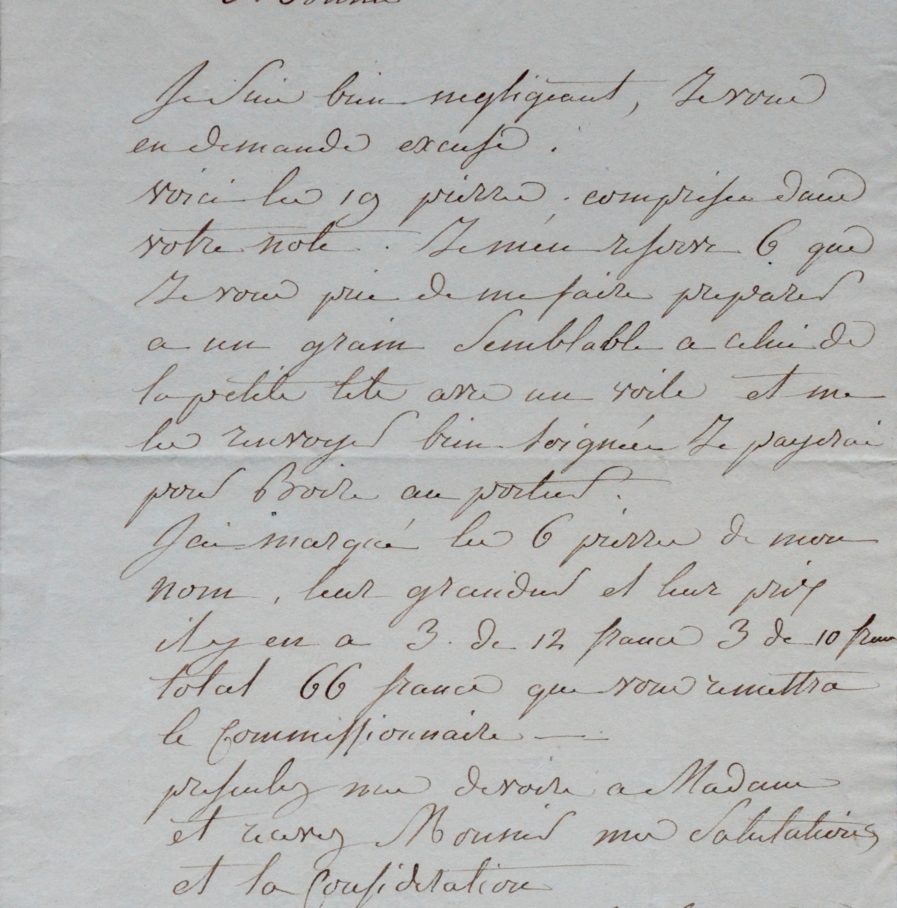 Je suis bien negligeant, Je vous
en demande excuse.
voici les 19 pierres comprises dans
votre note. Je m'en reserve 6 que
Je vous prie de me faire preparer
a un grain semblable a celui de
la petite tete avec un voile et me
les renvoyer bien soignées Je payerai
pour Boire au porteur.
J'ai marqué les 6 pierres de mon
nom, leur grandeur et leur prix
il y en a 3. de 12 francs 3 de 10 francs
total 66 francs que vous remettra
le Commissionnaire —
presentez mes devoirs a Madame
et recevez Monsieur mes Salutations
et la Consideration